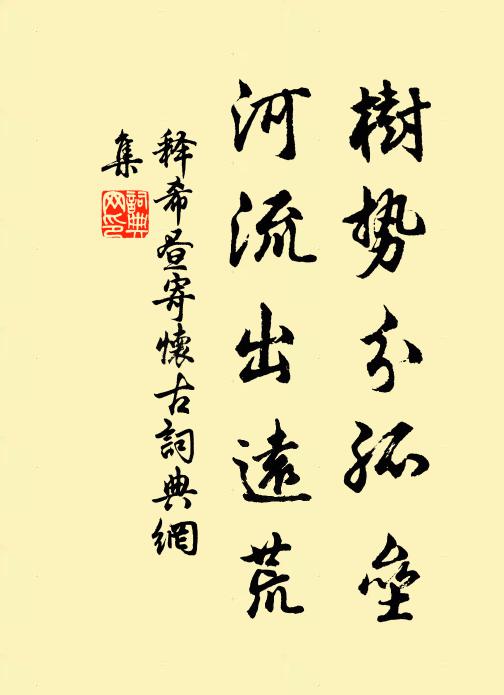 樹勢分孤壘
河流出遠荒
释希昼寄懷古詞典網
集
詞典网印